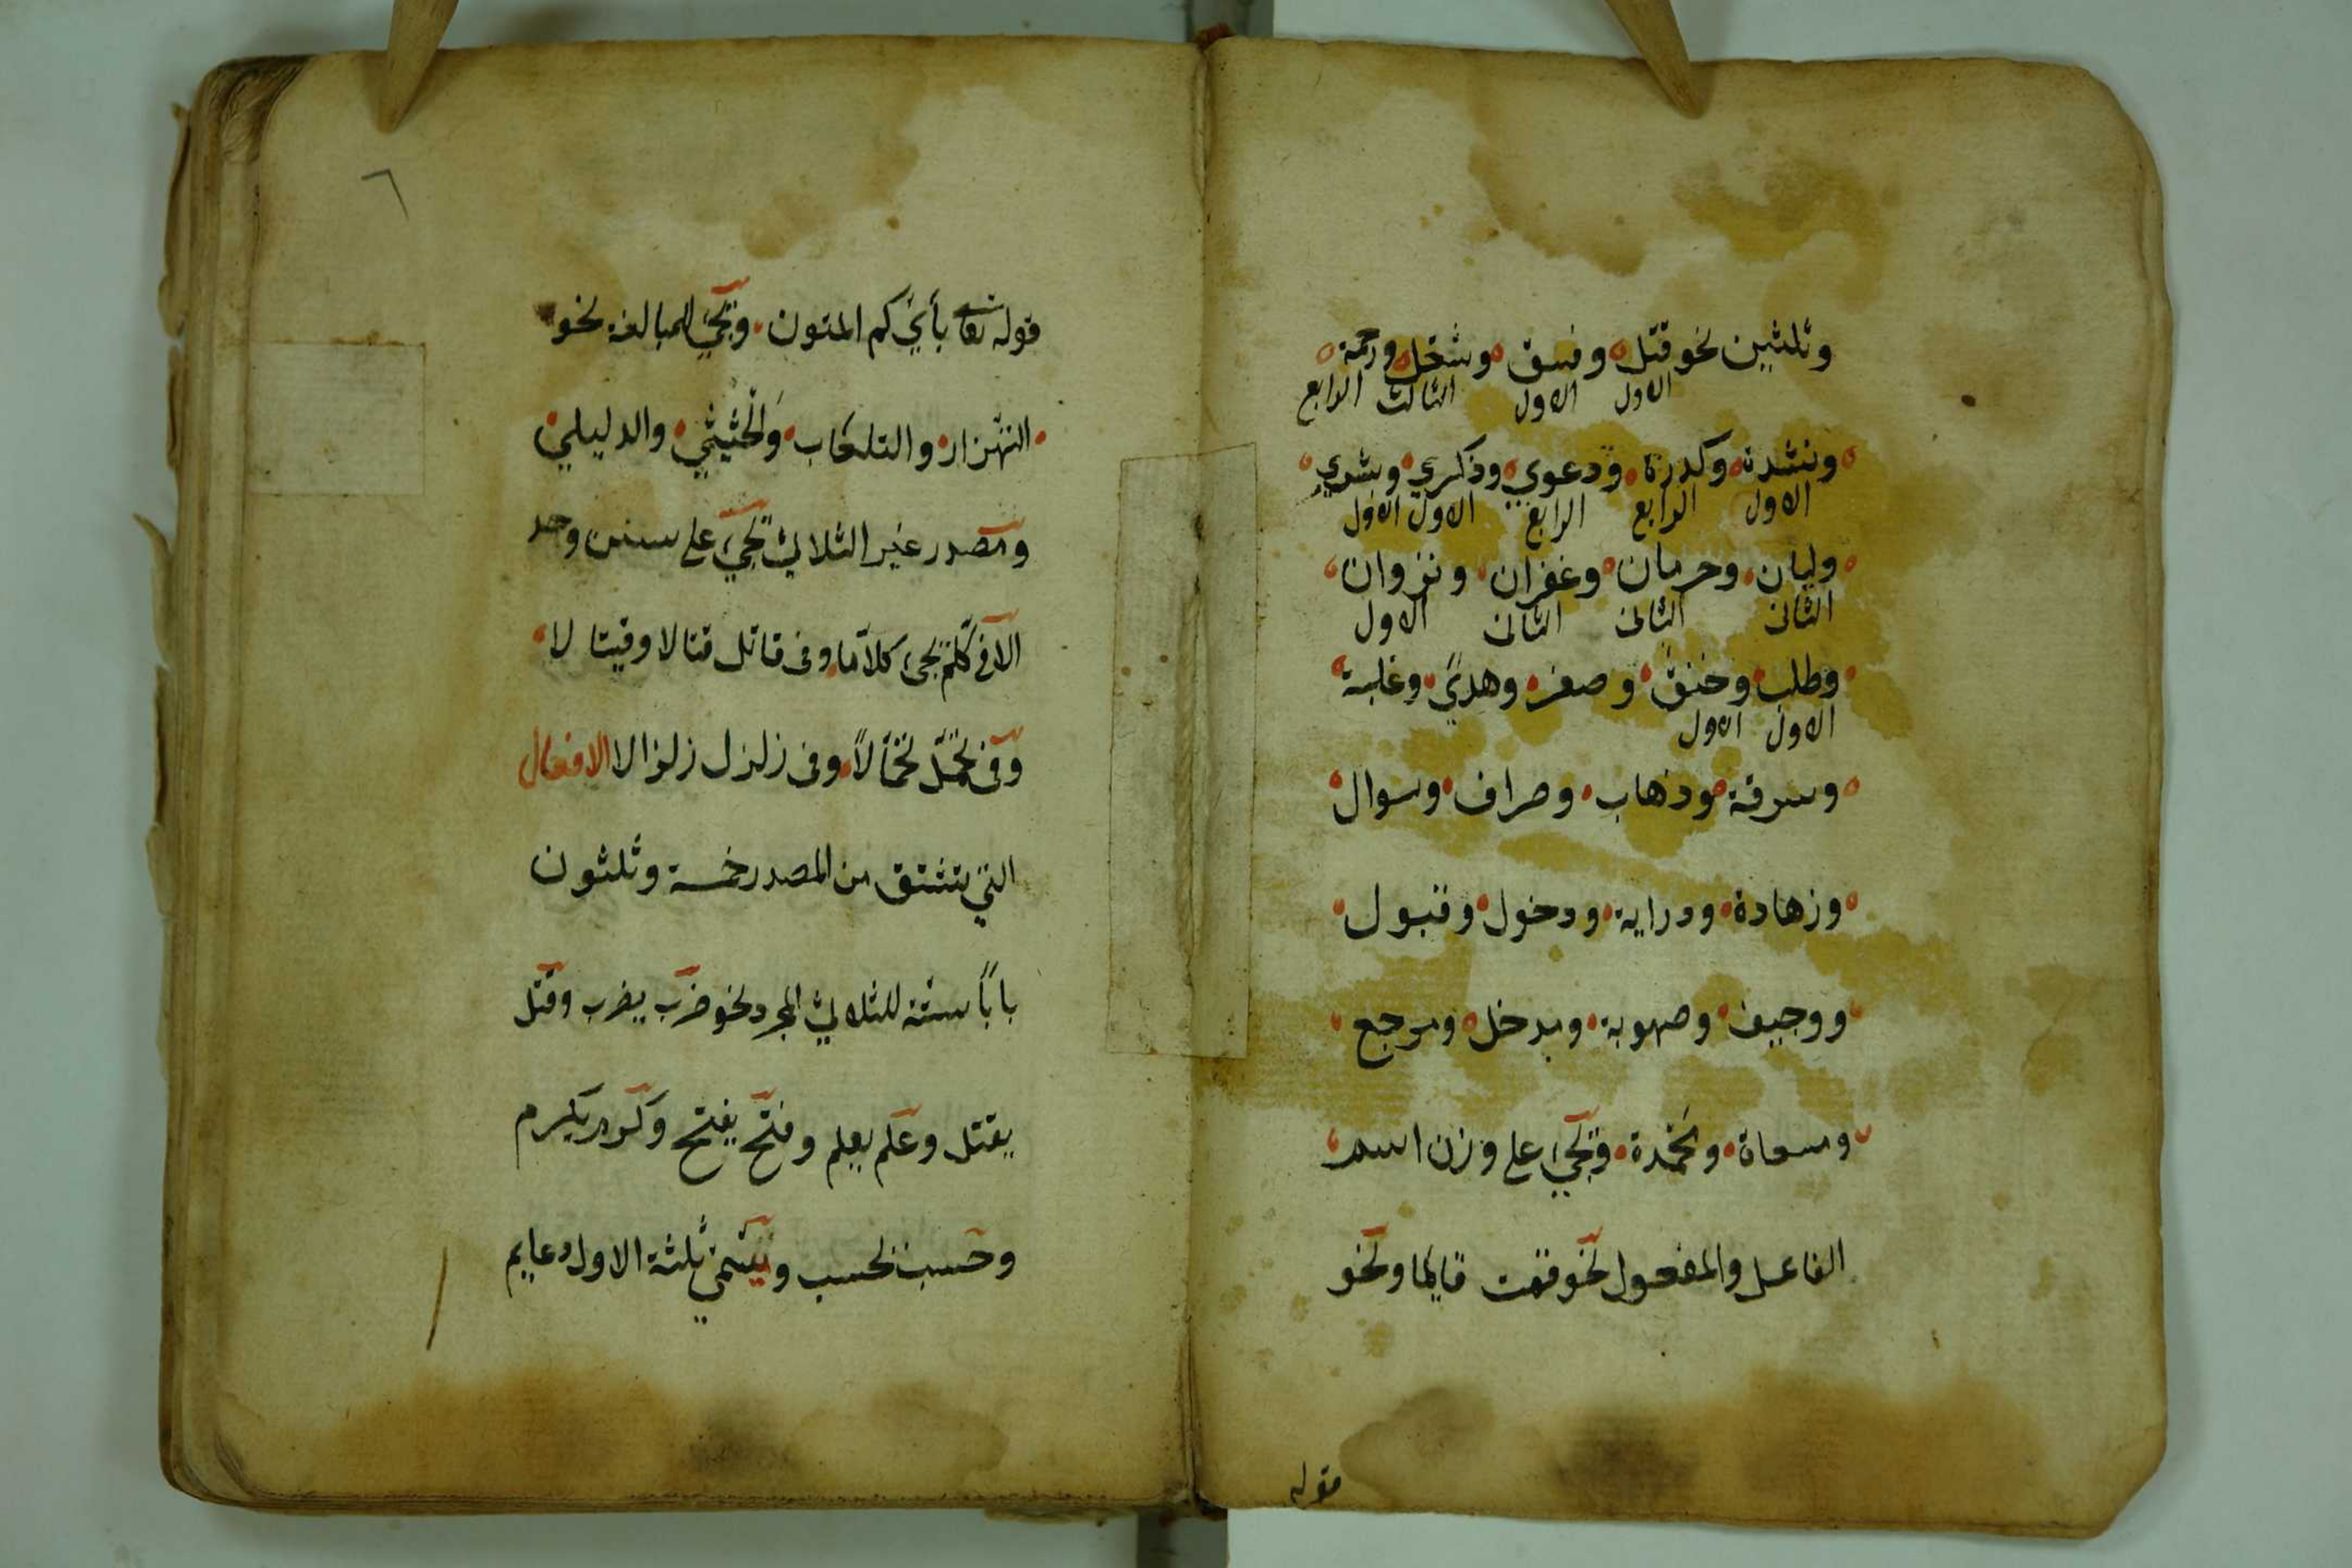 وثلثين نحو قتل وفسق وشغل ورحمة
الاول الاول الثالث الرابع
ونشدة وكدرة ودعوي وذكري وبشري
الاول الرابع الرابع الاول الاول
وليان وحرمان وغفران ونزوان
الثانى الثانى الثانى الاول
وطلب وخنق وصغر وهديً وغلبة
الاول الاول
وسرقة وذهاب وصراف وسوال
وزهادة ودراية ودخول وقبول
ووجيف وصهوبة ومدخل ومرجع
ومسعاة ومَحْمدة وتجيء على وزن اسم
الفاعل والمفعول نحو قمت قايما ونحو
قوله
٦
قوله تعالى بأيّكم المفتون وتجيء للمبالغة نحو
التهزار والتلعاب وَالْحثيثي والدليلي
ومصدر غير الثلاثي تجيء على سنن وحد
الا فى كلّم تجئ كلاّما وفى قاتل قتالا وقيتالا
وفى تحمّل تحمّالاً وفى زلزل زلزالا الافعال
التي يشتق من المصدر خمسة وثلثون
باباً ستة للثلاثي المجرد نحو ضرب يضرب وقتل
يقتل وعلم يعلم وفتح يفتح وكرم يكرم
وحسب يحسب ويسمي ثلثة الاول دعايم